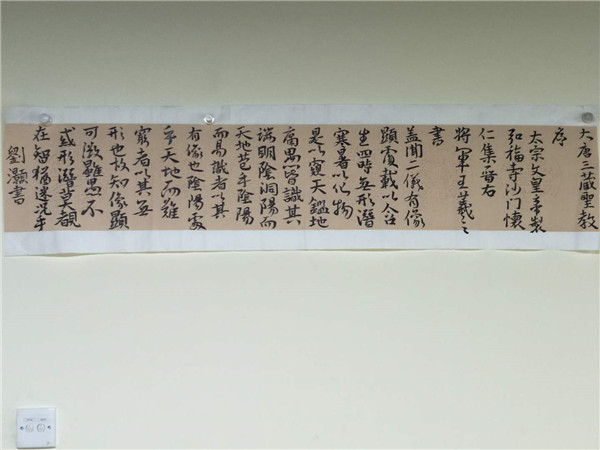 大唐三藏聖教
序
太宗文皇帝製
弘福寺沙门懷
仁集晉右
將軍王羲之
書
蓋聞二儀有像
顯覆載以含
生四時無形潛
寒暑以化物
是以窺天鑑地
庸愚皆識其
端明陰洞陽而
天地苞乎陰陽
而易識者以其
有像也陰陽處
乎天地而難
窮者以其無
形也故知像顯
可徵雖愚不
惑形潛莫覩
在智猶迷况乎
劉灝書